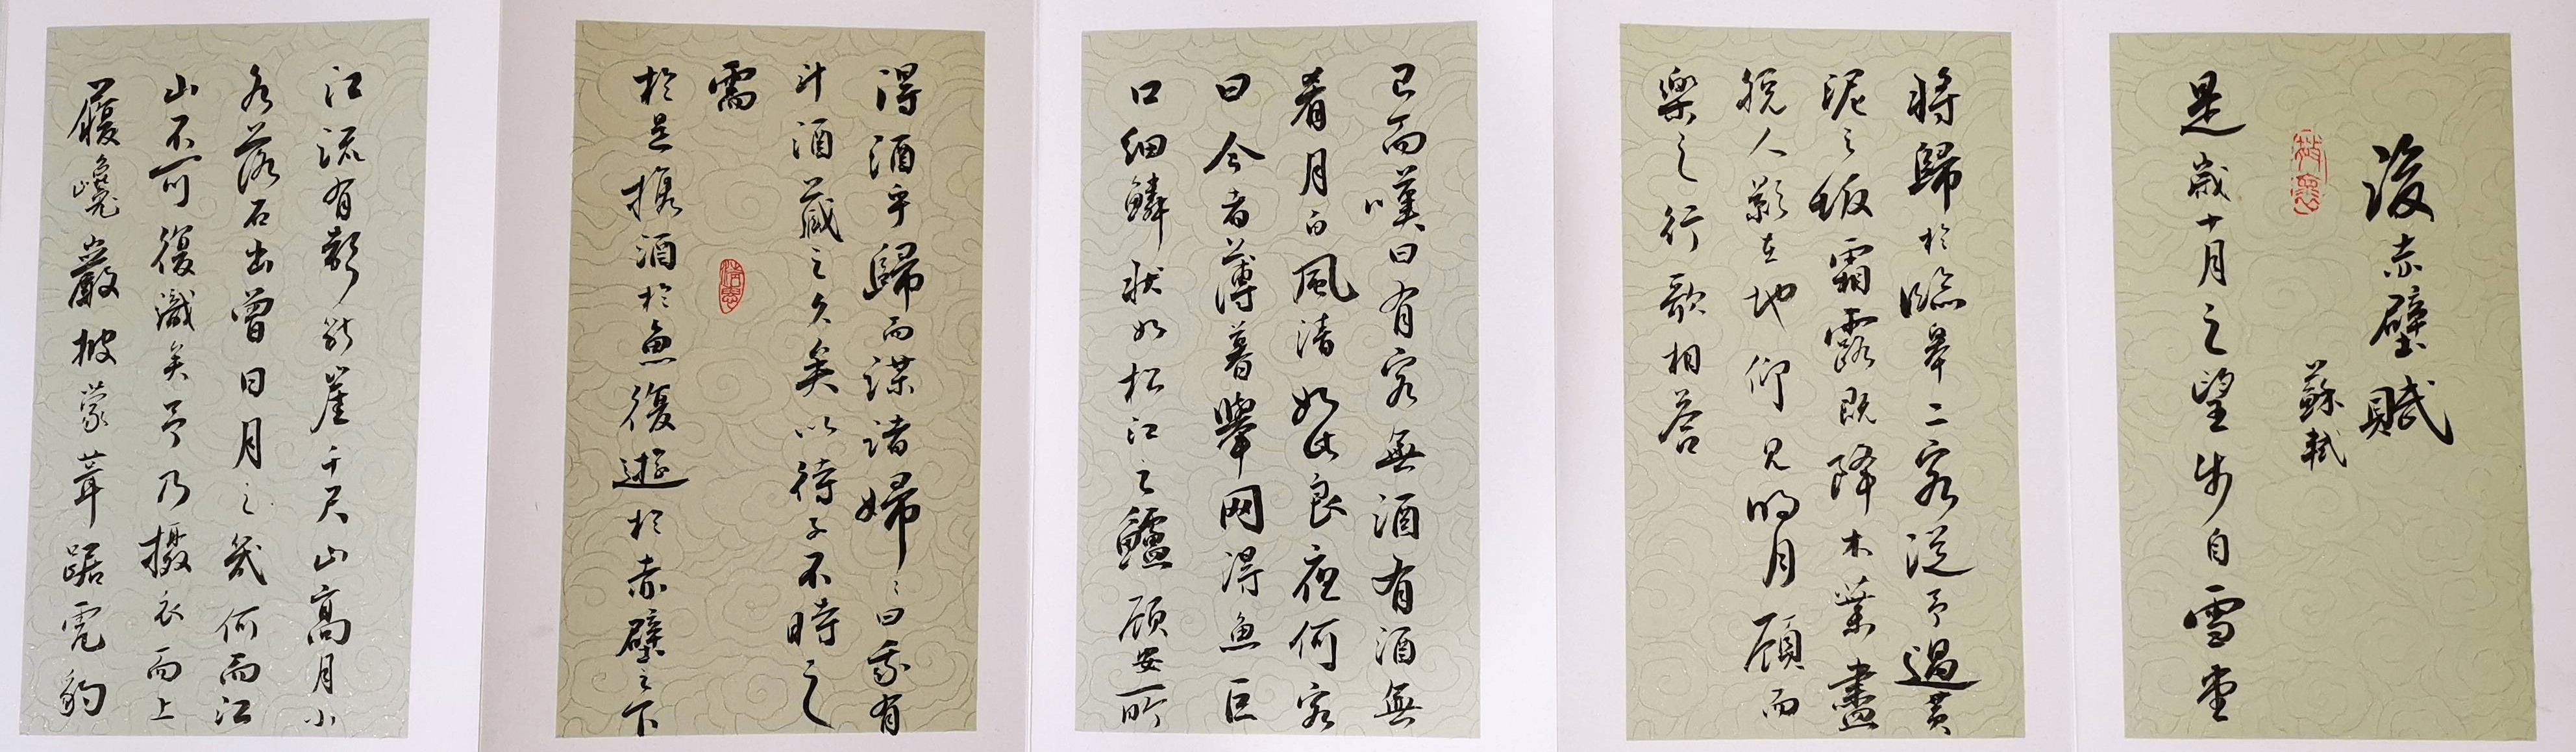 後赤壁賦
蘇軾
是歲十月之望步自雪堂
將歸於臨皋二客從予過黃
泥之坂霜露既降木葉盡
脫人影在地仰見明月顧而
樂之行歌相答
已而嘆曰有客無酒有酒無
肴月白風清如此良夜何客
曰今者薄暮舉网得魚巨
口細鱗狀如松江之鱸顧安所
得酒乎歸而謀諸婦〻曰我有
斗酒藏之久矣以待子不時之
需
於是攜酒於魚復遊於赤壁之下
江流有聲斷崖千尺山高月小
水落石出曾日月之幾何而江
山不可復識矣予乃攝衣而上
履巉巖披蒙茸踞虎豹